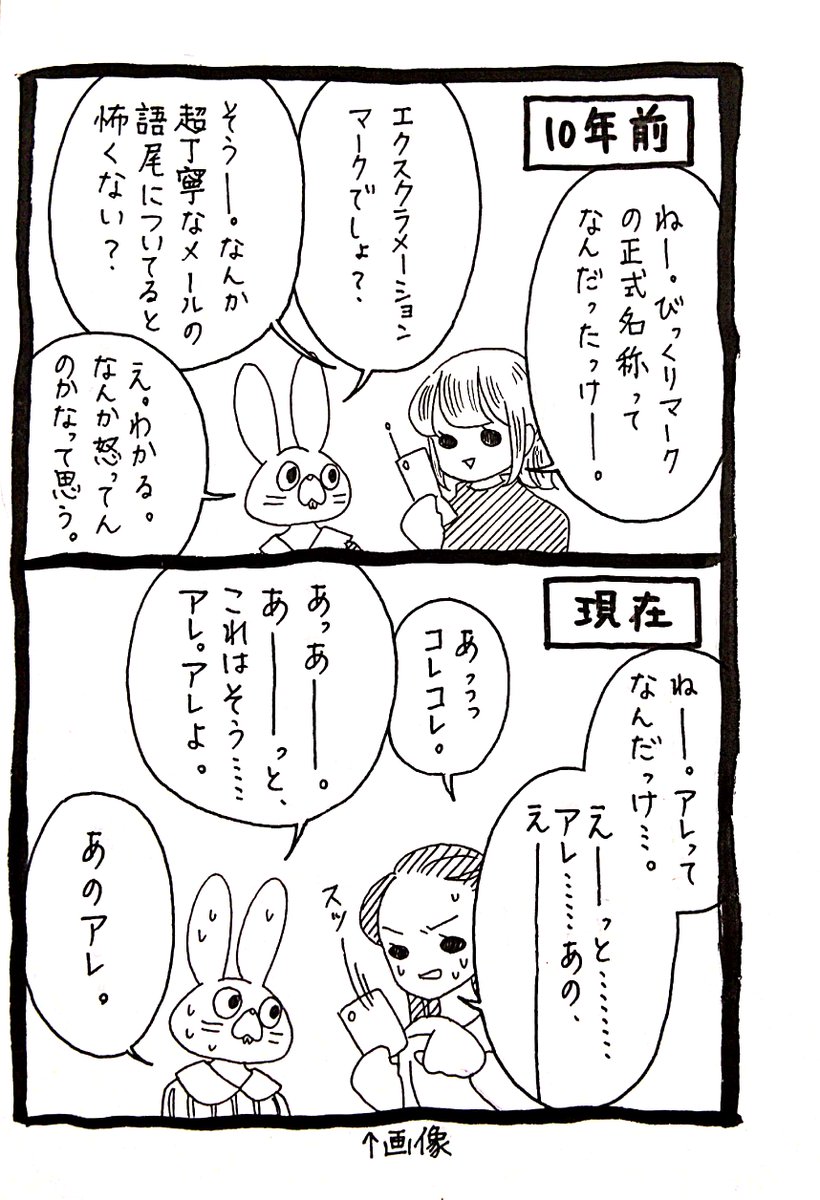 10年前
ねー。びっくりマーク
の正式名称って
なんだったっけー。
エクスクラメーション
マークでしょ？
そうー。なんか
超丁寧なメールの
語尾についてると
怖くない？
え。わかる。
なんか怒ってん
のかなって思う。
現在
ねー。アレって
なんだっけ…。
えーっと………
アレ……あの、
えー
あっっっ
コレコレ。
スッ
あっあー。
あーーっと、
これはそう……
アレ。アレよ。
あのアレ。
↑画像